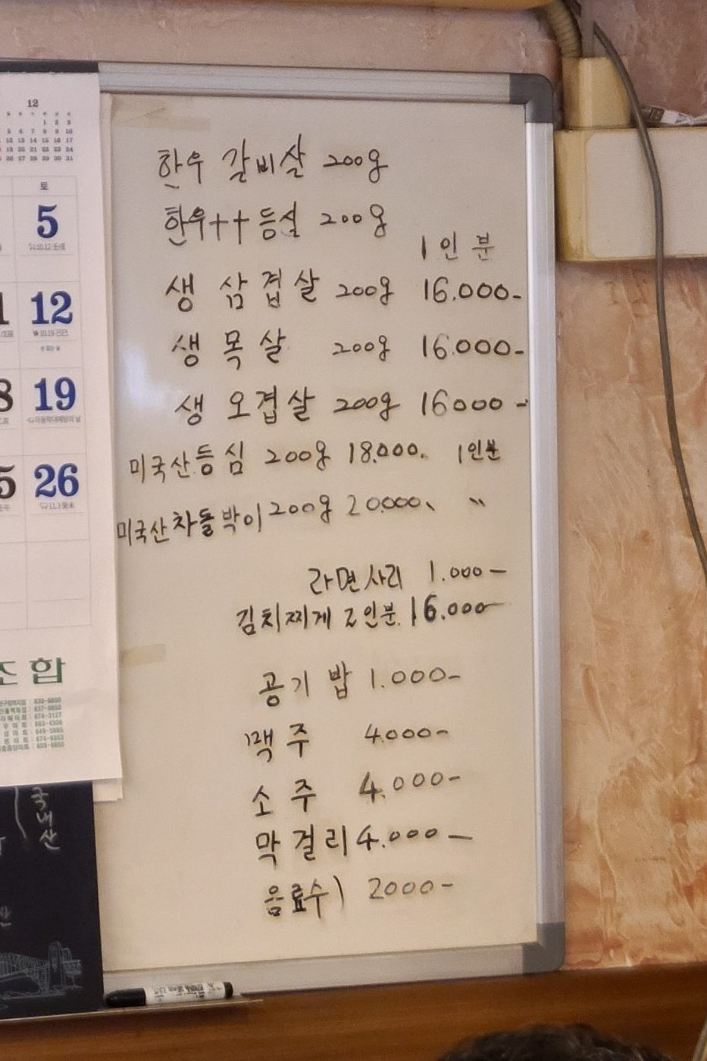 12
토
5
12
19
26
조합
국내산
한우 갈비살 200g
한우++등심 200g
1인분
생 삼겹살 200g 16.000-
생 목살 200g 16.000-
생 오겹살 200g 16000-
미국산등심 200g 18.000. 1인분
미국산차돌박이 200g 20.000. 〃
라면사리 1.000-
김치찌게 2인분 16.000-
공기밥 1.000-
맥주 4.000-
소주 4.000-
막걸리 4.000-
음료수) 2000-